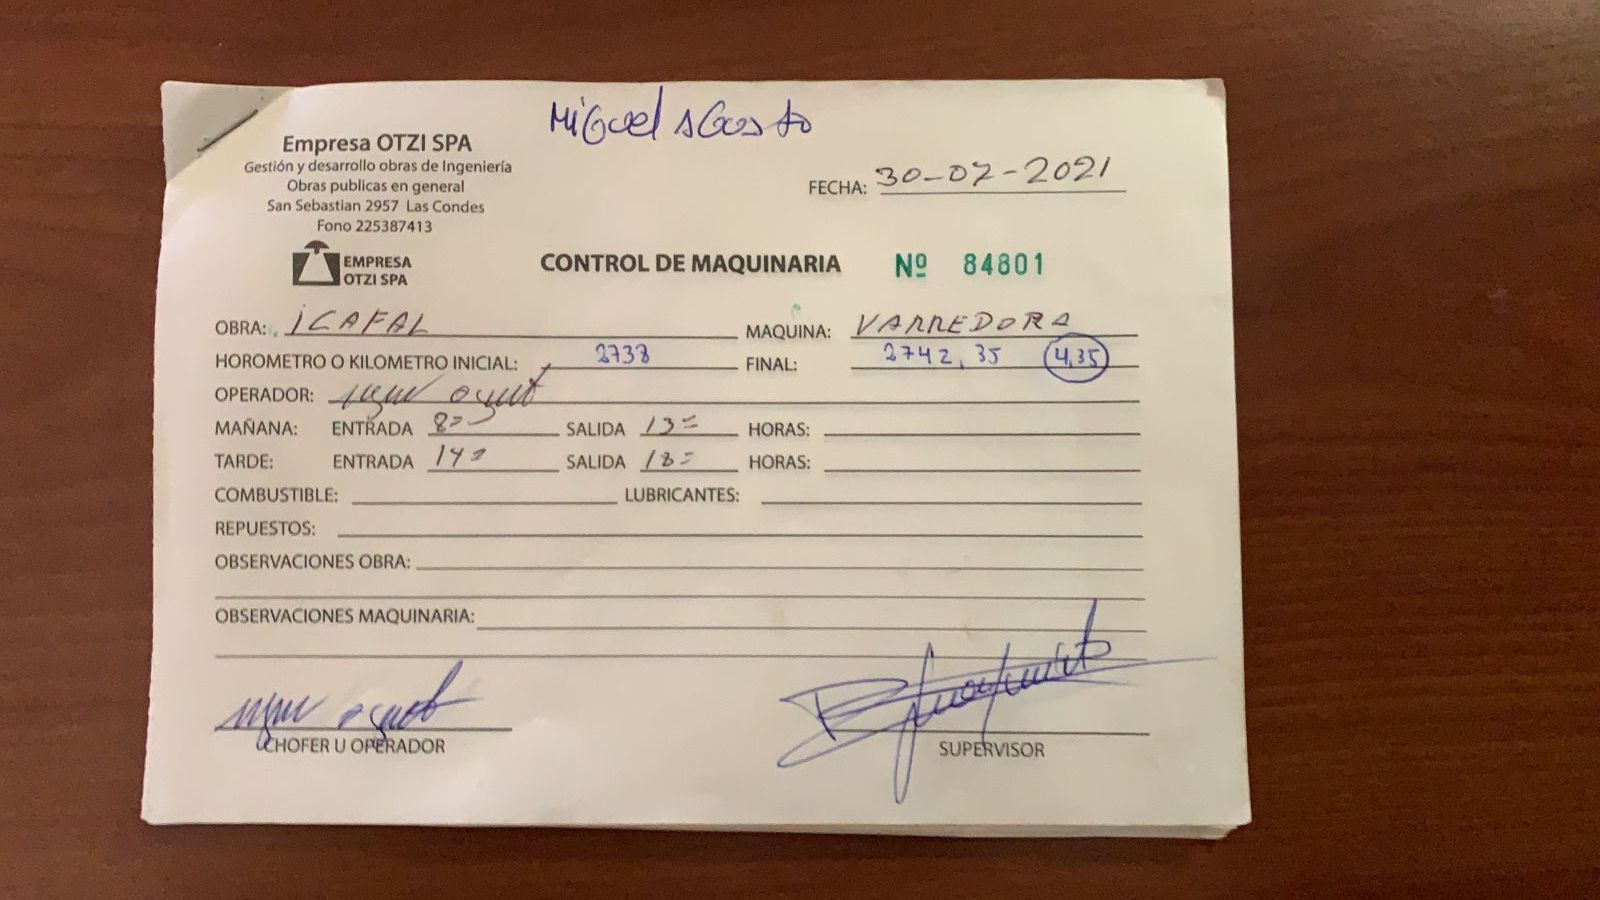 Miguel AGosto
Empresa OTZI SPA
Gestión y desarrollo obras de Ingeniería
Obras publicas en general
San Sebastian 2957 Las Condes
Fono 225387413
FECHA: 30-07-2021
EMPRESA
OTZI SPA
CONTROL DE MAQUINARIA Nº 84801
OBRA: ICAFAL MAQUINA: VARREDORA
HOROMETRO O KILOMETRO INICIAL: 2738 FINAL: 2742,35 4,35
OPERADOR:
MAÑANA: ENTRADA 8= SALIDA 13= HORAS:
TARDE: ENTRADA 14= SALIDA 18= HORAS:
COMBUSTIBLE: LUBRICANTES:
REPUESTOS:
OBSERVACIONES OBRA:
OBSERVACIONES MAQUINARIA:
CHOFER U OPERADOR
SUPERVISOR